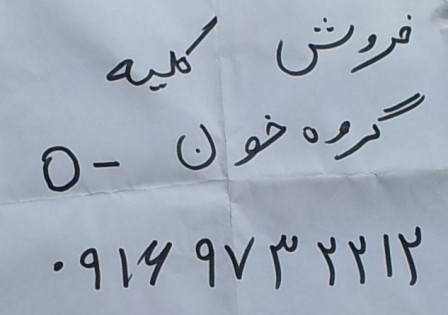 فروش کلیه
گروه خون O-
۰۹۱۶ ۹۷۳ ۲۲۱۲